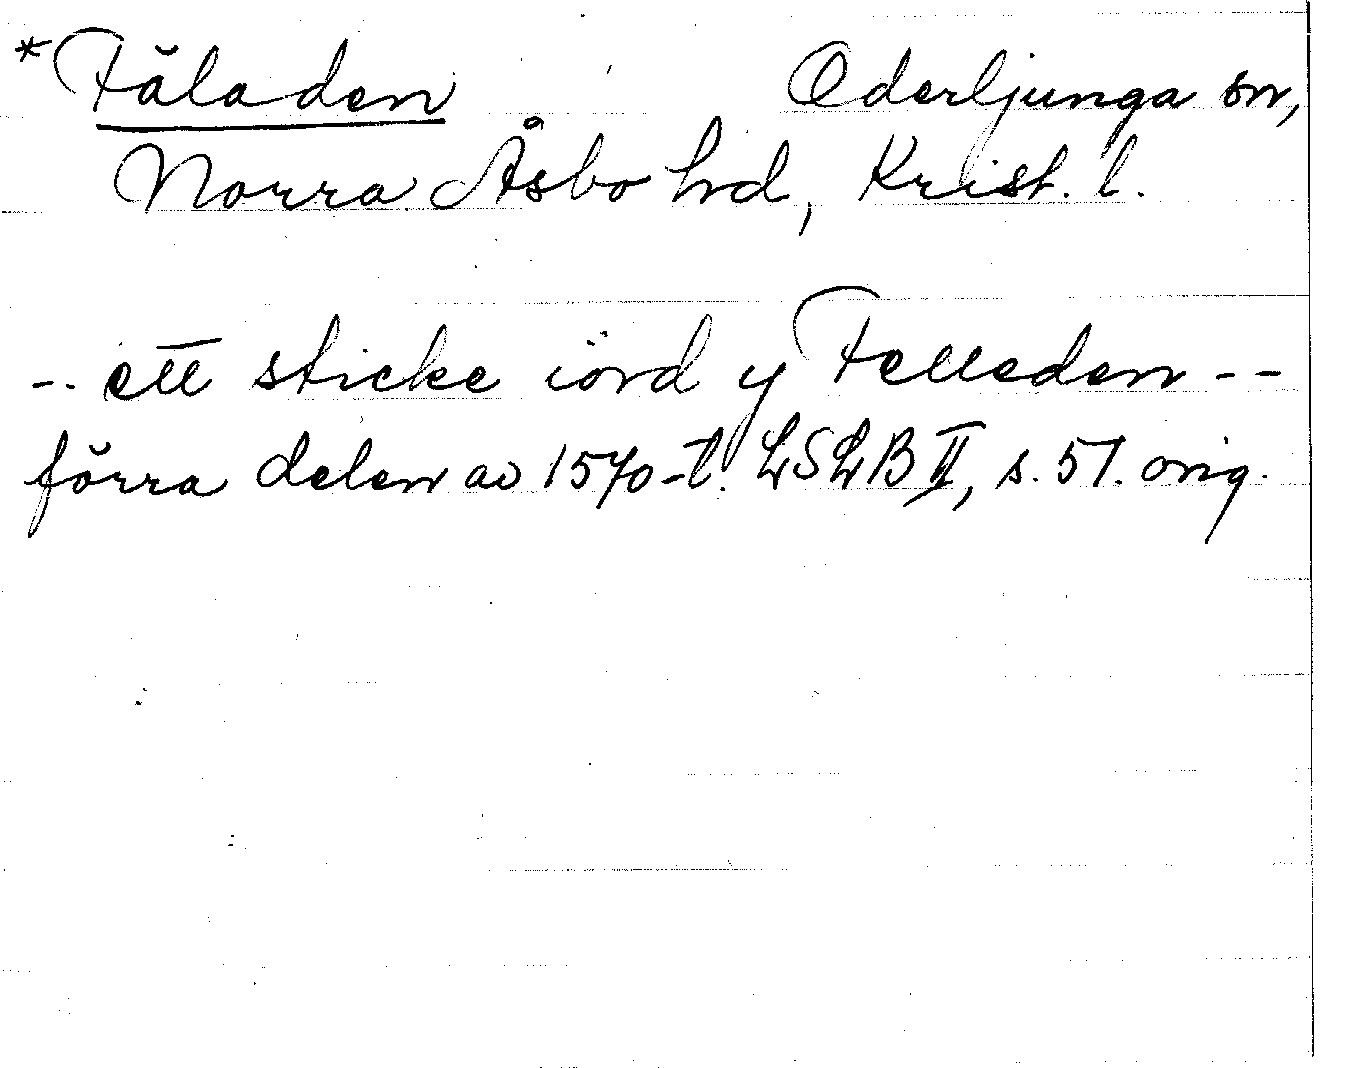 *Fäladen Oderljunga sn,
Norra Åsbo hd, Krist. l.
-- ett sticke iörd y Felleden --
förra delen av 1570-t. LSLB II, s. 57. orig.